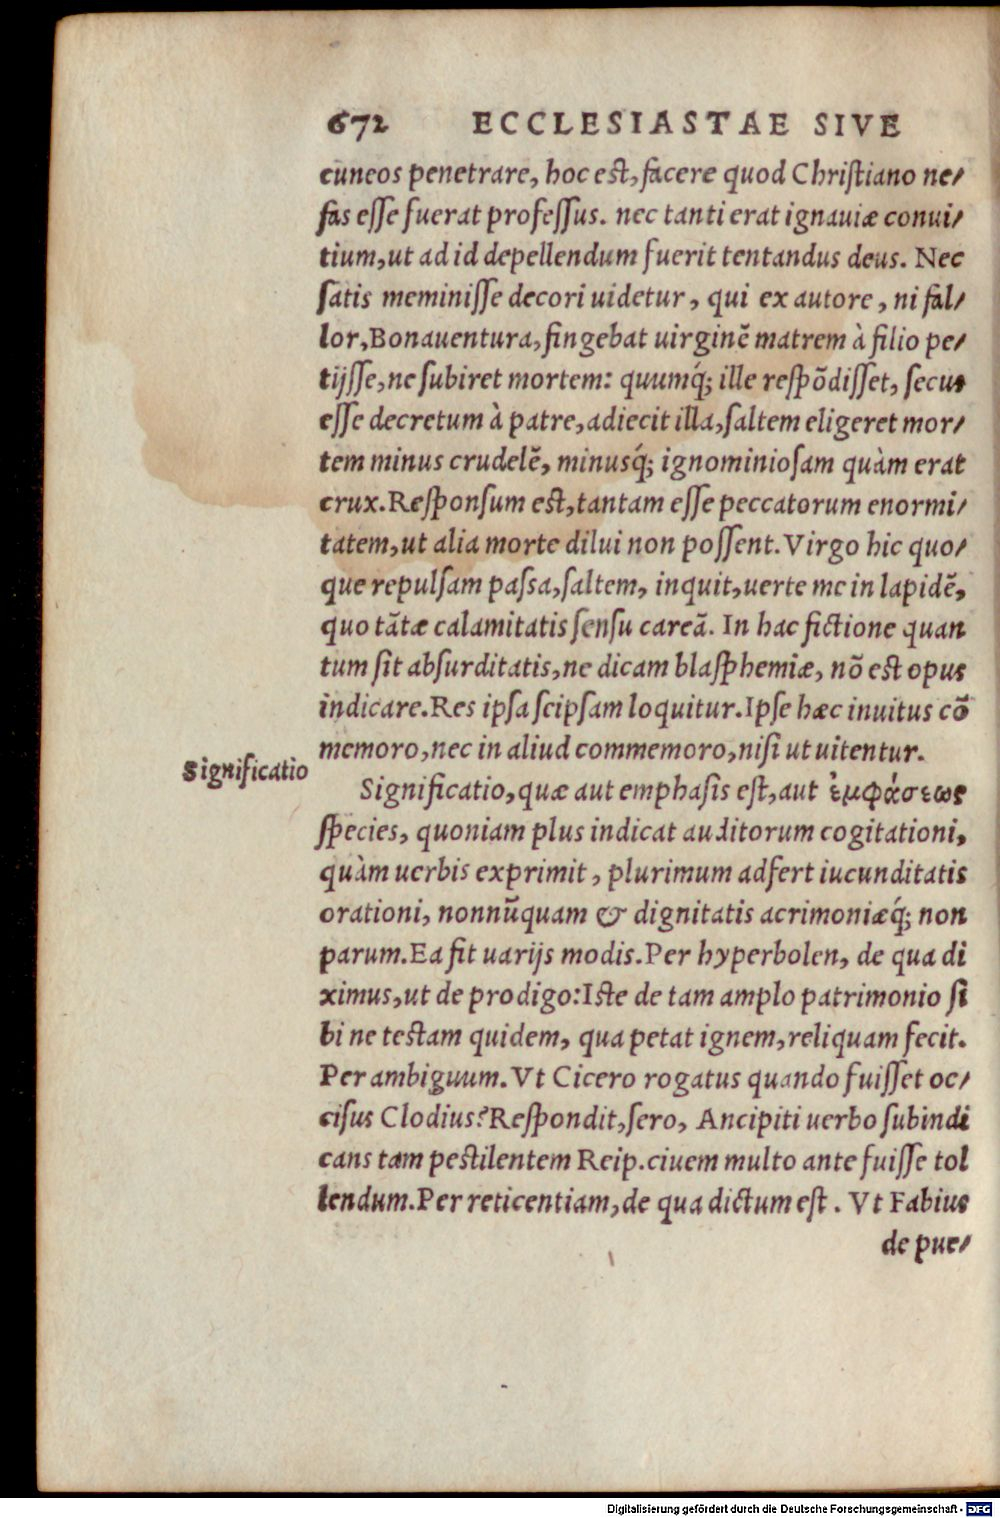 672 ECCLESIASTAE SIVE
cuneos penetrare, hoc est, facere quod Christiano ne/
fas esse fuerat professus. nec tanti erat ignauiæ conui/
tium, ut ad id depellendum fuerit tentandus deus. Nec
satis meminisse decori uidetur, qui ex autore, ni fal/
lor, Bonauentura, fingebat uirginẽ matrem à filio pe/
tijsse, ne subiret mortem: quumq́; ille respõdisset, secus
esse decretum à patre, adiecit illa, saltem eligeret mor/
tem minus crudelẽ, minusq́; ignominiosam quàm erat
crux. Responsum est, tantam esse peccatorum enormi/
tatem, ut alia morte dilui non possent. Virgo hic quo/
que repulsam passa, saltem, inquit, uerte me in lapidẽ,
quo tãtæ calamitatis sensu careã. In hac fictione quan
tum sit absurditatis, ne dicam blasphemiæ, nõ est opus
indicare. Res ipsa seipsam loquitur. Ipse hæc inuitus cõ
memoro, nec in aliud commemoro, nisi ut uitentur.
Significatio
Significatio, quæ aut emphasis est, aut ἐμφάσεως
species, quoniam plus indicat auditorum cogitationi,
quàm uerbis exprimit, plurimum adfert iucunditatis
orationi, nonnũquam & dignitatis acrimoniæq́; non
parum. Ea fit uarijs modis. Per hyperbolen, de qua di
ximus, ut de prodigo: Iste de tam amplo patrimonio si
bi ne testam quidem, qua petat ignem, reliquam fecit.
Per ambiguum. Vt Cicero rogatus quando fuisset oc/
cisus Clodius? Respondit, sero, Ancipiti uerbo subindi
cans tam pestilentem Reip. ciuem multo ante fuisse tol
lendum. Per reticentiam, de qua dictum est. Vt Fabius
de pue/
Digitalisierung gefördert durch die Deutsche Forschungsgemeinschaft - DFG